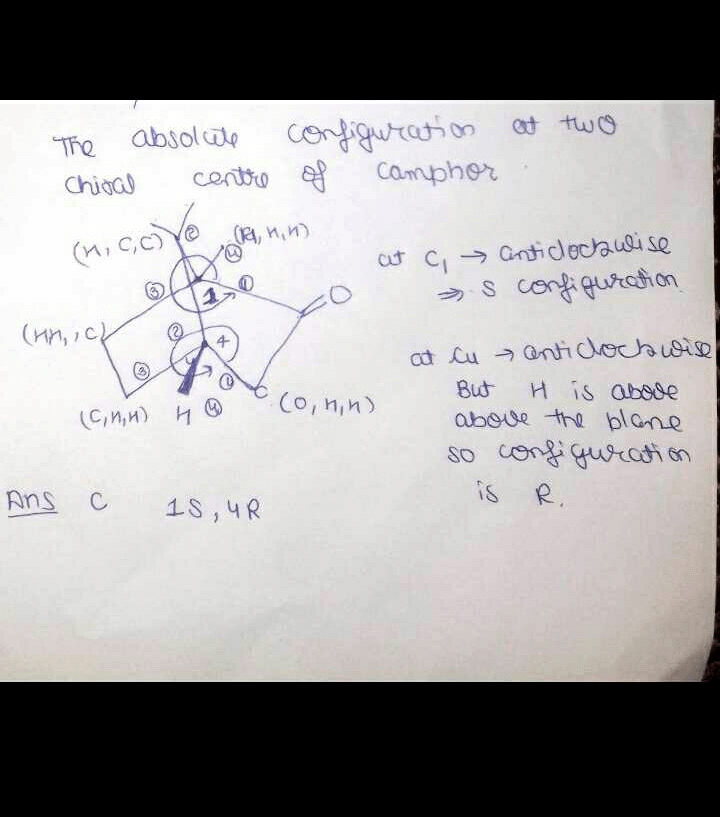 The absolute configuration at two
chiral centre of camphor.
(H, C, C) ② (H, H, H)
④
③ 1 ① O
at C₁ → anticlockwise
⇒ S configuration.
(HH, , C) ② 4
③ 4 ①
(C, H, H) H ④ C (O, H, H)
at C4 → anticlockwise
But H is above
above the plane
so configuration
is R.
Ans C 1S, 4R